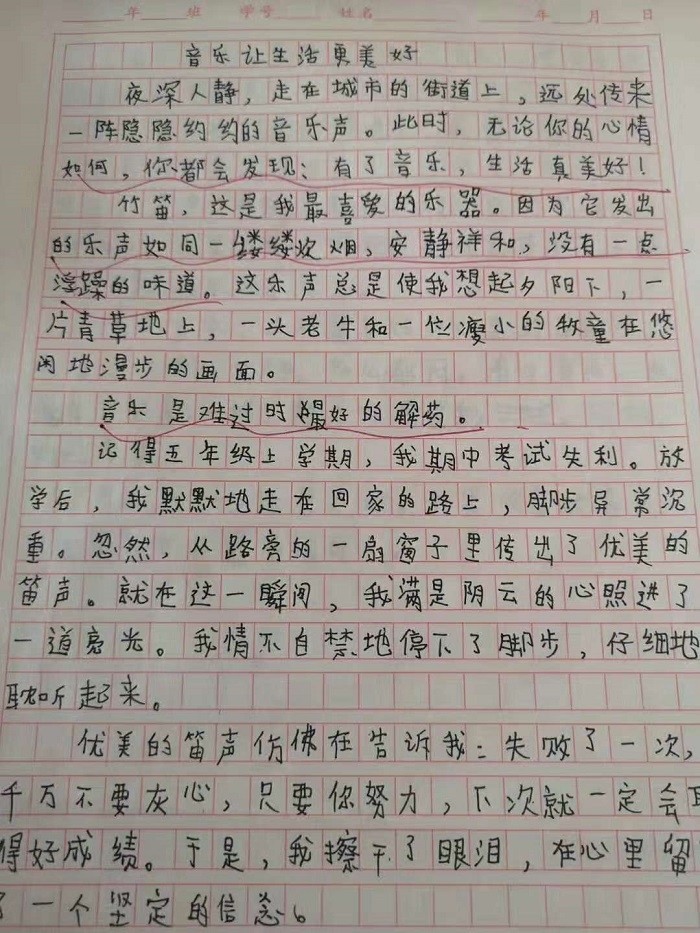 年 班 学号 姓名 年 月 日
音乐让生活更美好
夜深人静，走在城市的街道上，远处传来
一阵隐隐约约的音乐声。此时，无论你的心情
如何，你都会发现：有了音乐，生活真美好！
竹笛，这是我最喜爱的乐器。因为它发出
的乐声如同一缕缕炊烟，安静祥和，没有一点
浮躁的味道。这乐声总是使我想起夕阳下，一
片青草地上，一头老牛和一位瘦小的牧童在悠
闲地漫步的画面。
音乐是难过时最好的解药。
记得五年级上学期，我期中考试失利。放
学后，我默默地走在回家的路上，脚步异常沉
重。忽然，从路旁的一扇窗子里传出了优美的
笛声。就在这一瞬间，我满是阴云的心照进了
一道亮光。我情不自禁地停下了脚步，仔细地
耽听起来。
优美的笛声仿佛在告诉我：失败了一次，
千万不要灰心，只要你努力，下次就一定会取
得好成绩。于是，我擦干了眼泪，在心里留
了一个坚定的信念。